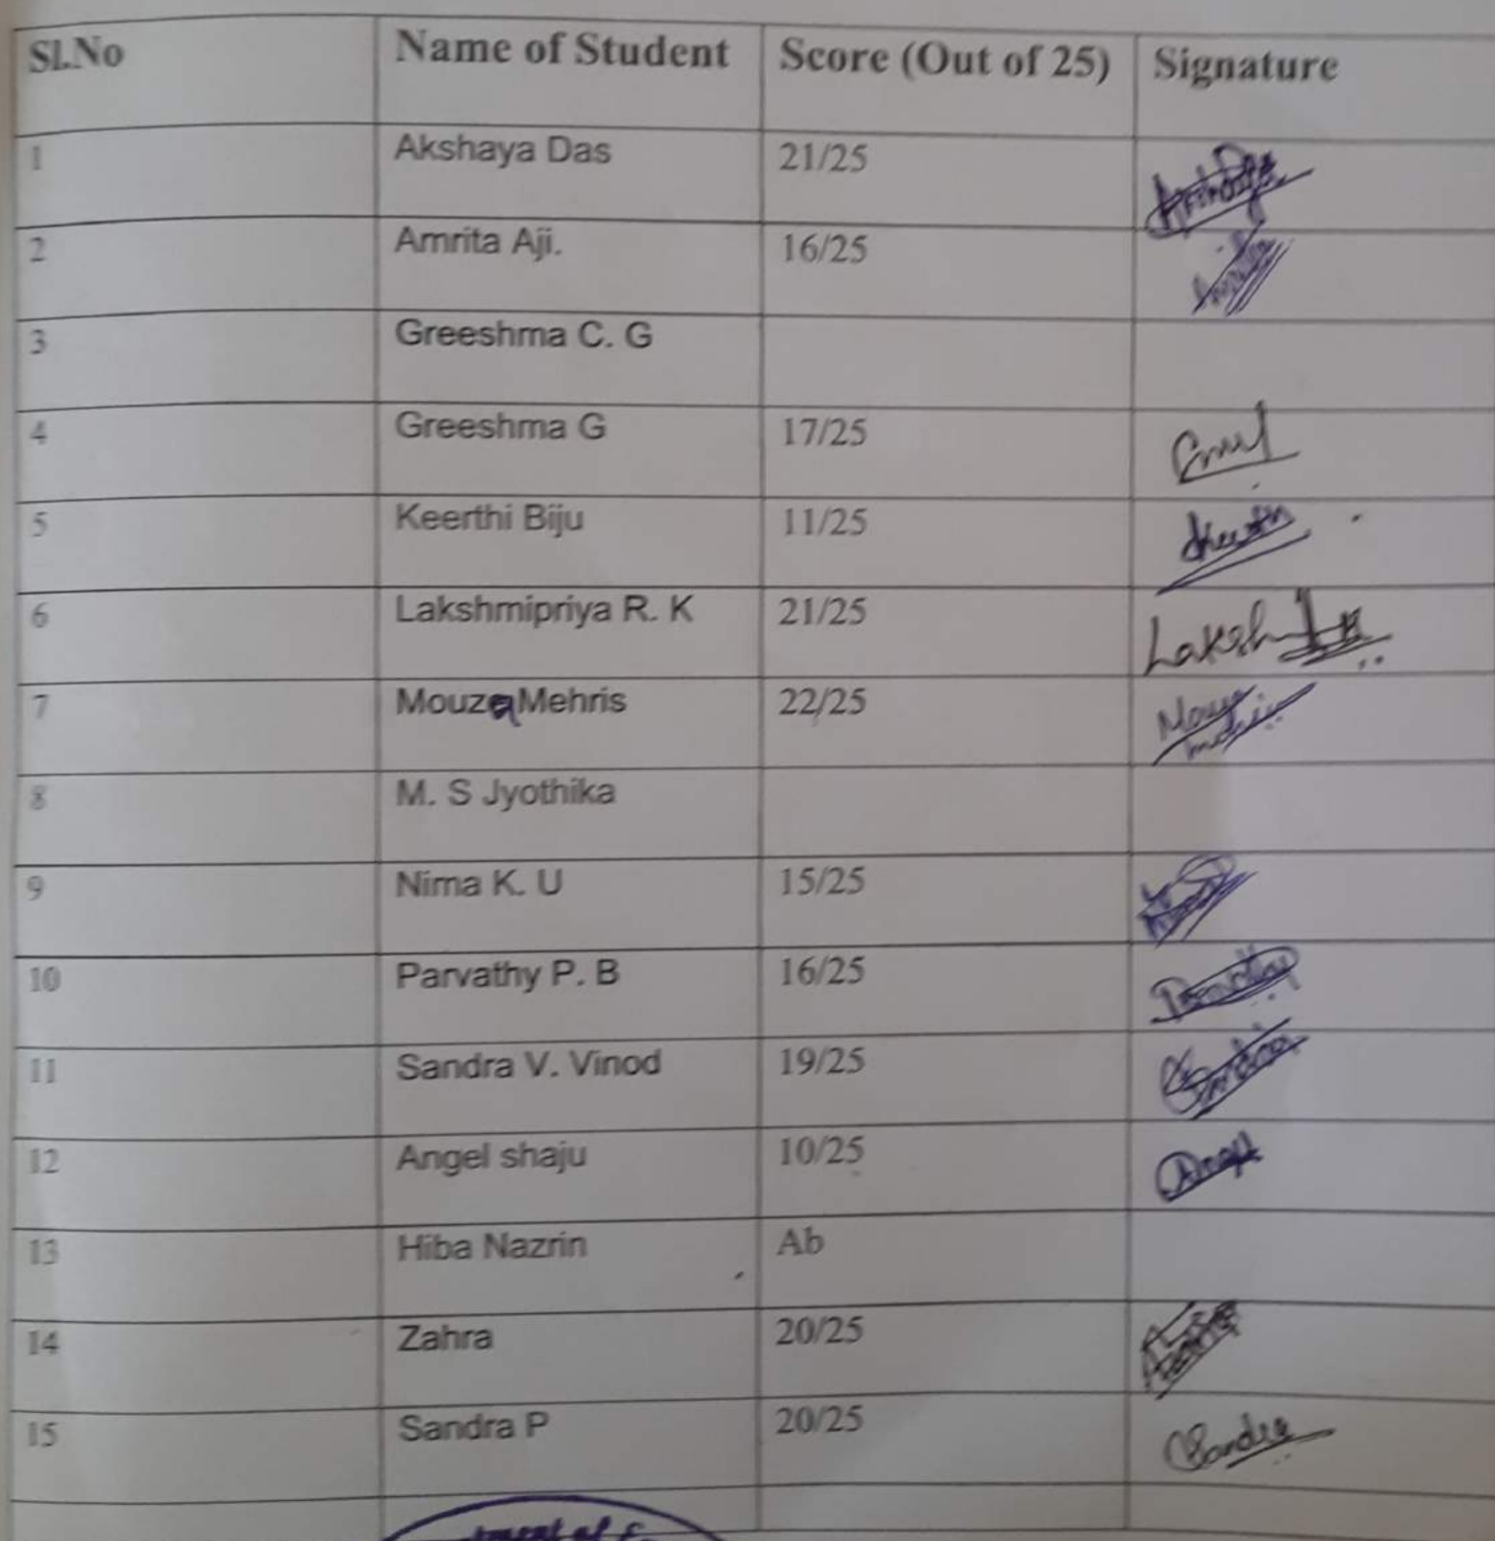 Sl.No Name of Student Score (Out of 25) Signature
1 Akshaya Das 21/25
2 Amrita Aji. 16/25
3 Greeshma C. G
4 Greeshma G 17/25
5 Keerthi Biju 11/25
6 Lakshmipriya R. K 21/25
7 Mouza Mehris 22/25
8 M. S Jyothika
9 Nima K. U 15/25
10 Parvathy P. B 16/25
11 Sandra V. Vinod 19/25
12 Angel shaju 10/25
13 Hiba Nazrin Ab
14 Zahra 20/25
15 Sandra P 20/25 Sandra